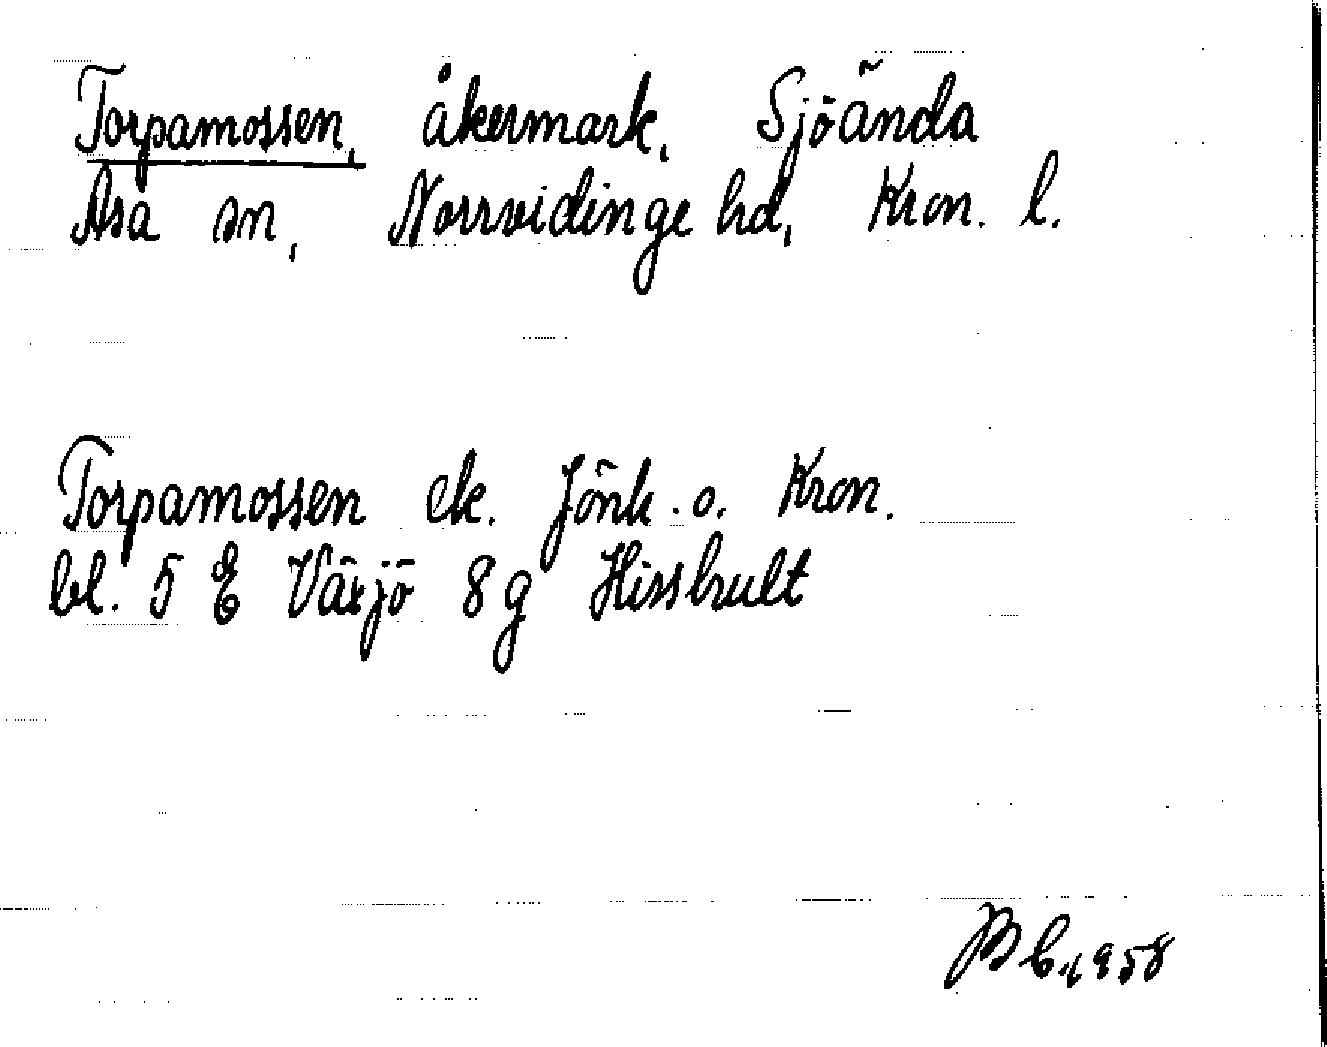 Torpamossen, åkermark, Sjöända
Asa sn, Norrvidinge hd, Kron. l.
Torpamossen ek. Jönk. o. Kron.
bl. 5 E Växjö 8g Hisshult
1958